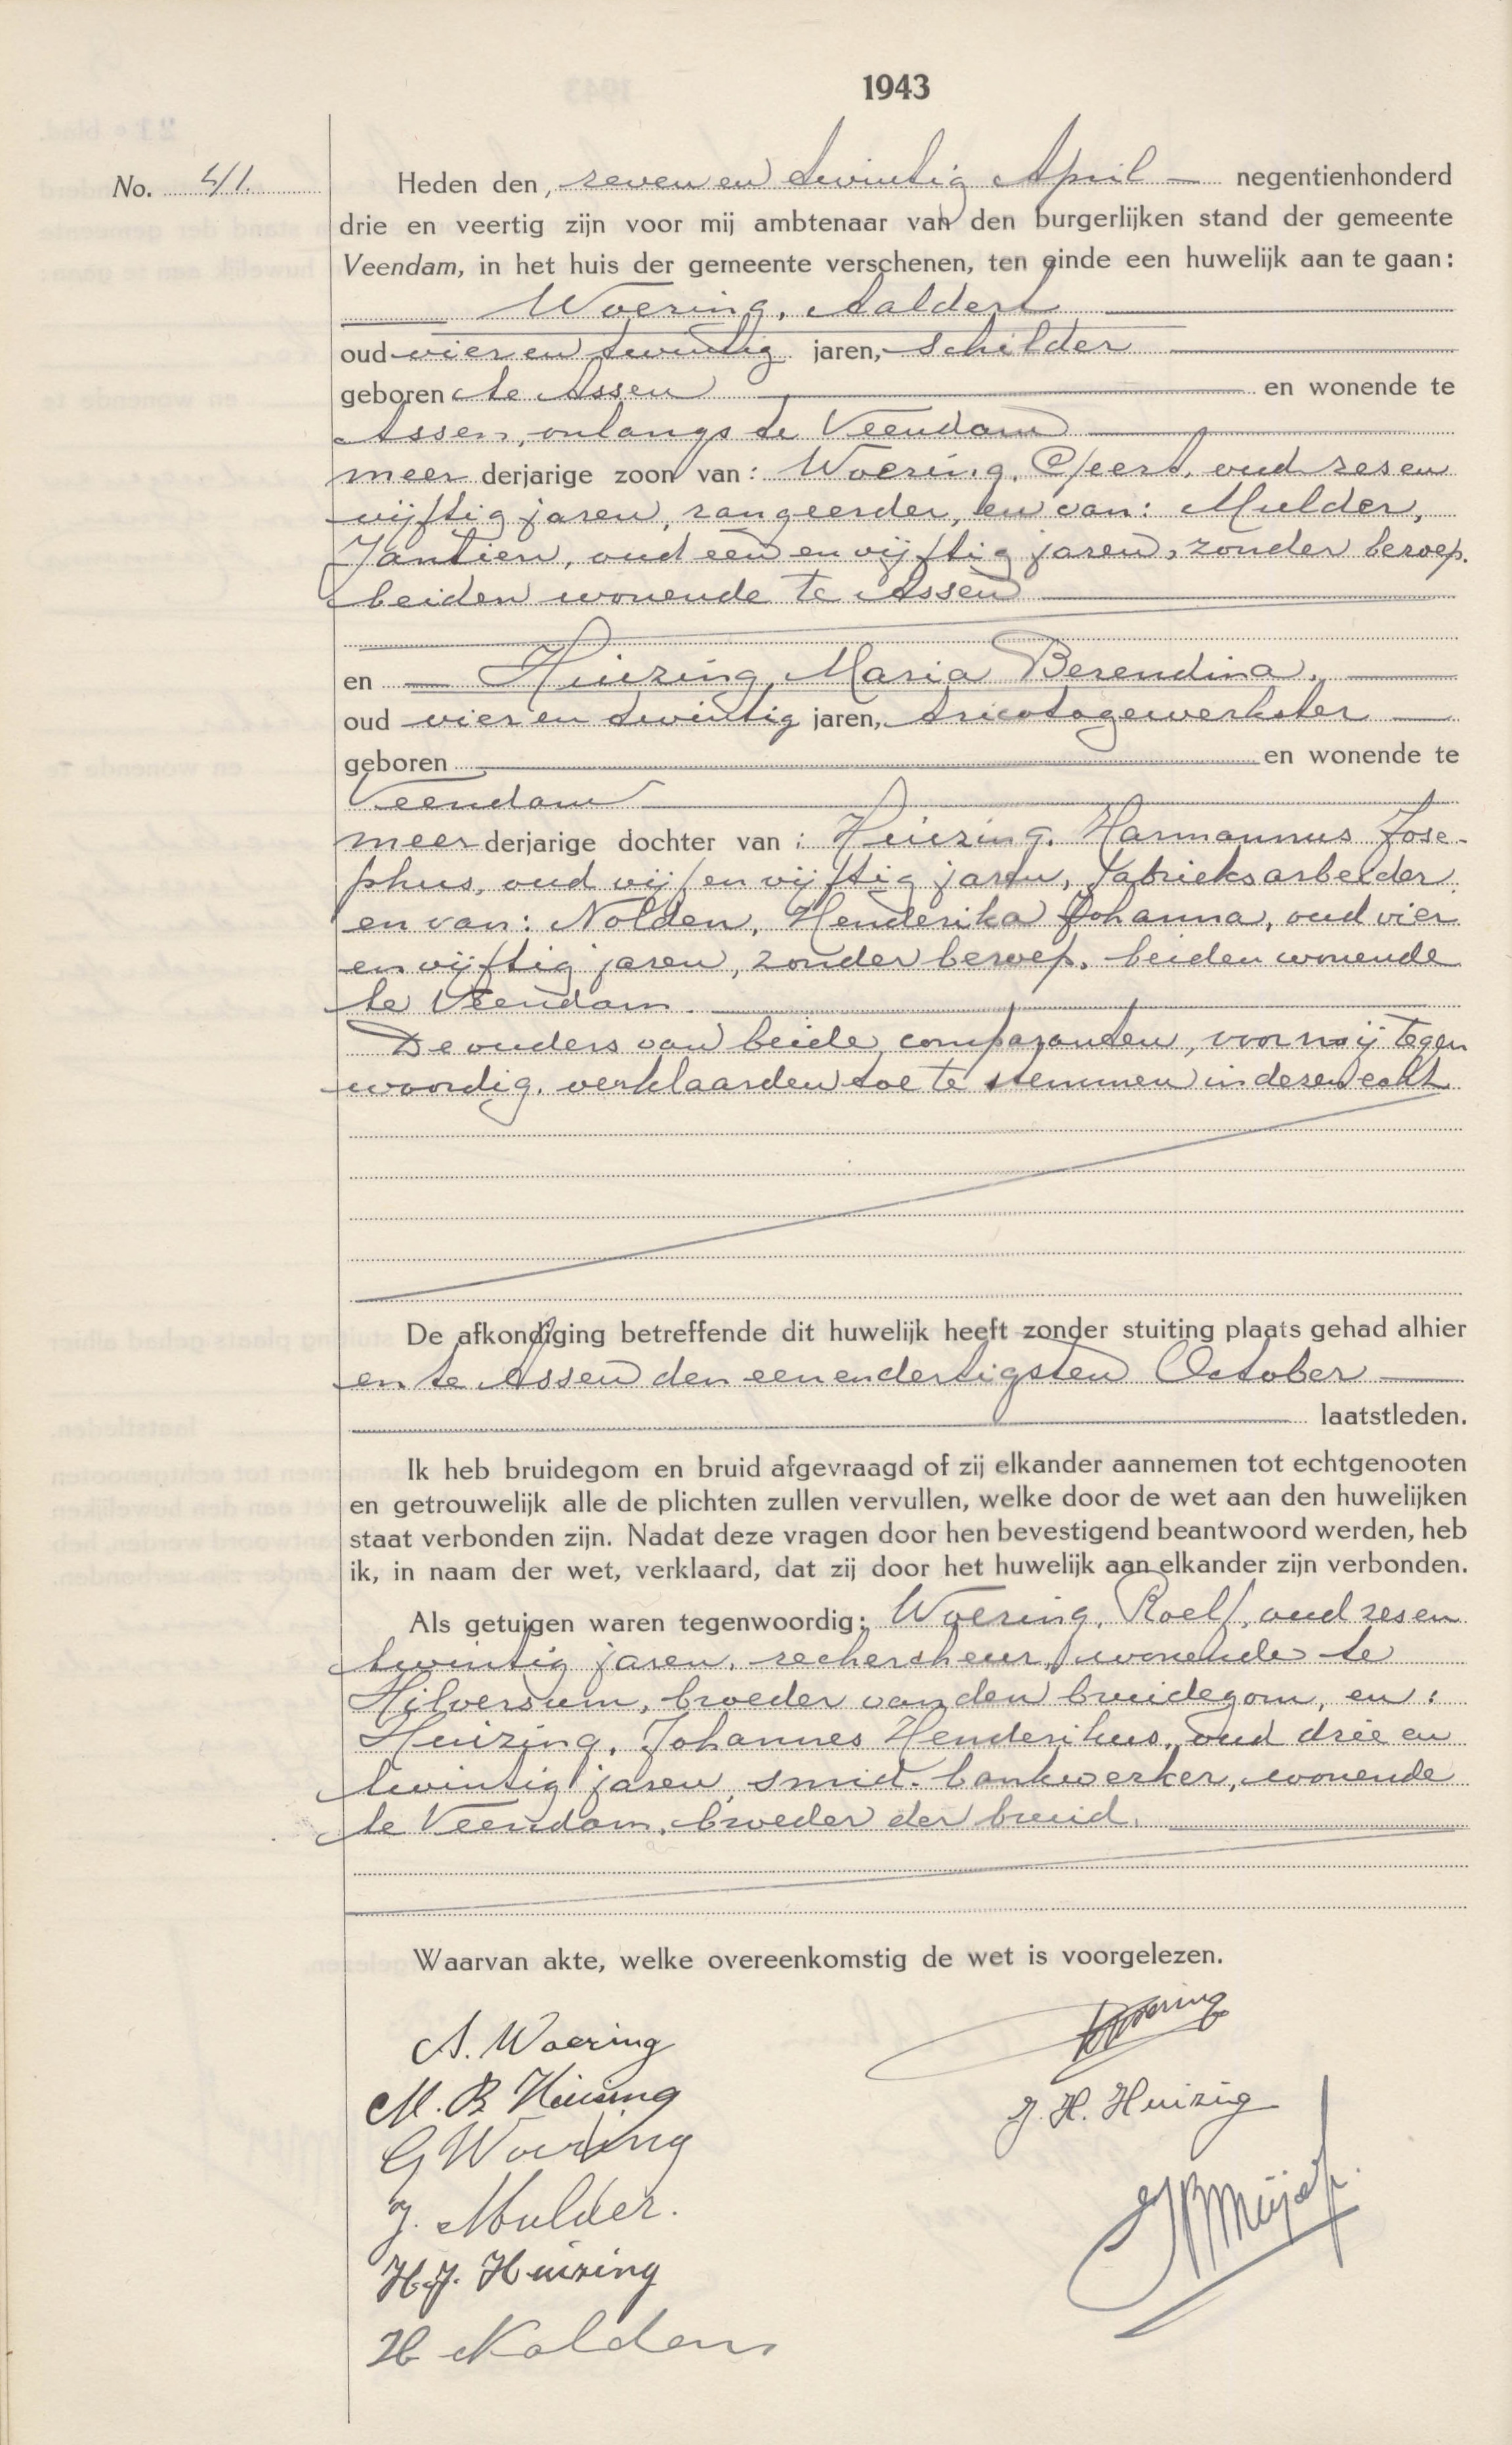 1943
No. 41.
Heden den, zeven en twintig April — negentienhonderd
drie en veertig zijn voor mij ambtenaar van den burgerlijken stand der gemeente
Veendam, in het huis der gemeente verschenen, ten einde een huwelijk aan te gaan:
Woering, Aaldert
oud vier en twintig jaren, schilder
geboren te Assen en wonende te
Assen, onlangs te Veendam
meer derjarige zoon van: Woering, Geert, oud zes en
vijftig jaren, rangeerder, en van: Mulder,
Jantien, oud een en vijftig jaren, zonder beroep.
beiden wonende te Assen
en — Huizing, Maria Berendina,
oud vier en twintig jaren, tricotagewerkster
geboren en wonende te
Veendam
meer derjarige dochter van: Huizing, Harmannus Jose-
phus, oud vijf en vijftig jaren, fabrieksarbeider
en van: Nolden, Henderika Johanna, oud vier
en vijftig jaren, zonder beroep, beiden wonende
te Veendam.
De ouders van beide comparanten, voor mij tegen
woordig, verklaarden toe te stemmen in dezen echt
De afkondiging betreffende dit huwelijk heeft zonder stuiting plaats gehad alhier
en te Assen den een en dertigsten October
laatstleden.
Ik heb bruidegom en bruid afgevraagd of zij elkander aannemen tot echtgenooten
en getrouwelijk alle de plichten zullen vervullen, welke door de wet aan den huwelijken
staat verbonden zijn. Nadat deze vragen door hen bevestigend beantwoord werden, heb
ik, in naam der wet, verklaard, dat zij door het huwelijk aan elkander zijn verbonden.
Als getuigen waren tegenwoordig: Woering, Roelf, oud zes en
twintig jaren, rechercheur, wonende te
Hilversum, broeder van den bruidegom, en:
Huizing, Johannes Henderikus, oud drie en
twintig jaren, smid-bankwerker, wonende
te Veendam, broeder der bruid.
Waarvan akte, welke overeenkomstig de wet is voorgelezen.
A. Woering
Woering
M. B. Huizing
J. H. Huizing
G Woering
J. Mulder.
H.J. Huizing
H Nolden